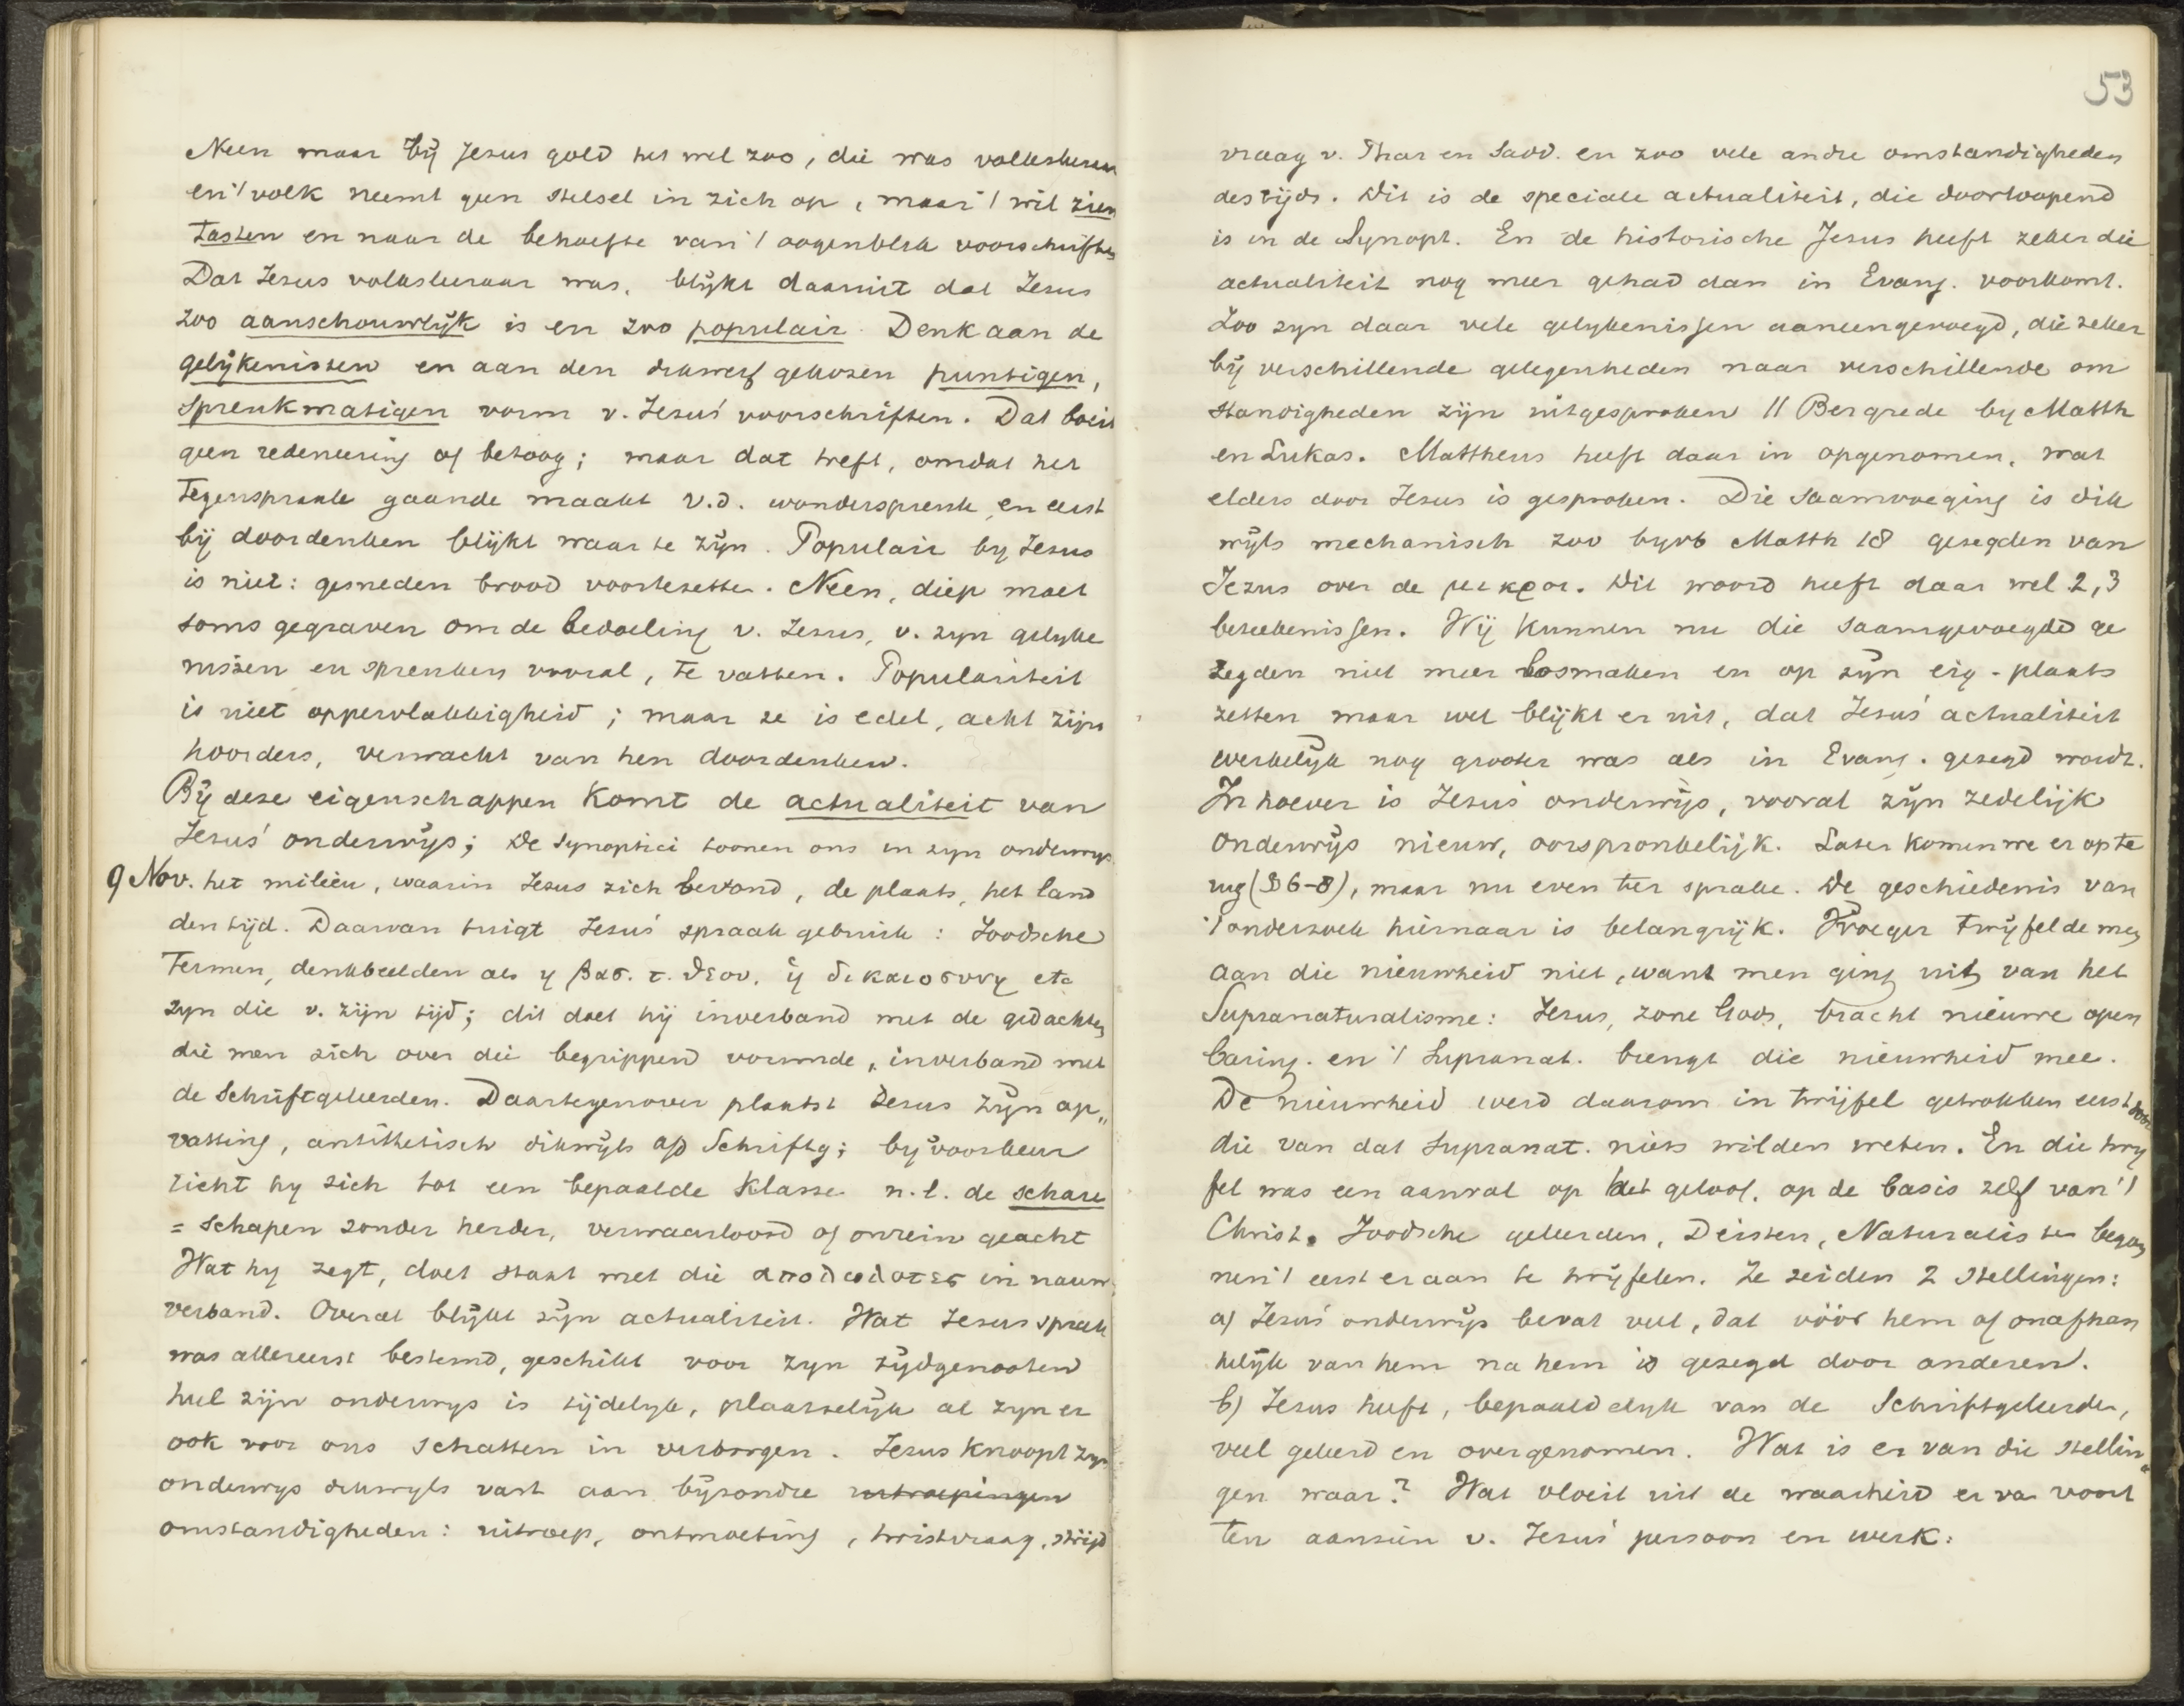 Neen maar bij Jezus gold het wel zoo, die was volksleeraar
en 't volk neemt geen stelsel in zich op, maar 't wil zien
tasten en naar de behoefte van 't oogenblik voorschriften
Dat Jezus volksleeraar was, blijkt daaruit dat Jezus
zoo aanschouwlijk is en zoo populair. Denk aan de
gelijkenissen en aan den dikwerf gekozen puntigen,
spreukmatigen vorm v. Jezus' voorschriften. Dat boeit
geen redeneering of betoog; maar dat treft, omdat het
tegenspraak gaande maakt v.d. wonderspreuk, en eerst
bij doordenken blijkt waar te zijn. Populair by Jezus
is niet: gesneden brood voortezetten. Neen, diep moet
soms gegraven om de bedoeling v. Jezus, v. zyn gelijke
nissen en spreuken vooral, te vatten. Populariteit
is niet oppervlakkigheid; maar ze is edel, acht zijn
hoorders, verwacht van hen doordenken.
Bij deze eigenschappen komt de actualiteit van
Jezus' onderwijs; De Synoptici toonen ons in zyn onderwijs
9 Nov. het milieu, waarin Jezus zich bevond, de plaats, het land
den tijd. Daarvan tuigt Jezus' spraakgebruik: Joodsche
Termen, denkbeelden als η βασ. τ. θεου, ἡ δικαιοσυνη etc
zyn die v. zijn tijd; dit doet hij inverband met de gedachten
die men zich over die begrippen vormde, inverband met
de Schriftgeleerden. Daartegenover plaatst Jezus zijn op„
vatting, antithetisch dikwijls a/d Schriftg; by voorkeur
richt hy zich tot een bepaalde klasse n.l. de schare
= schapen zonder herder, verwaarloosd of onrein geacht
Wat hy zegt, doet staat met die απολωλοτες in nauw
verband. Overal blijkt zijn actualiteit. Wat Jezus sprak
was allereerst bestemd, geschikt voor zyn tijdgenooten
heel zijn onderwys is tijdelyk, plaatselijk al zyn er
ook voor ons schatten in verborgen. Jezus knoopt zyn
onderwys dikwyls vast aan bijzondre uitroepingen
omstandigheden: uitroep, ontmoeting, twistvraag, strijd
53
vraag v. Phar en Sadd. en zoo vele andre omstandigheden
destijds. Dit is de speciale actualiteit, die doorloopend
is in de Synopt. En de historische Jezus heeft zeker die
actualiteit nog meer gehad dan in Evang. voorkomt.
Zoo zyn daar vele gelykenissen aaneengevoegd, die zeker
bij verschillende gelegenheden naar verschillende om
standigheden zijn uitgesproken // Bergrede by Matth
en Lukas. Mattheus heeft daar in opgenomen, wat
elders door Jezus is gesproken. Die saamvoeging is dik
wijls mechanisch zoo byvb Matth 18 gezegden van
Jezus over de μικροι. Dit woord heeft daar wel 2,3
beteekenissen. Wij kunnen nu die saamgevoegde ge
zegden niet meer losmaken en op zijn eig. plaats
zetten maar wel blijkt er uit, dat Jezus' actualiteit
werkelijk nog grooter was als in Evang. gezegd wordt.
In hoever is Jezus' onderwijs, vooral zijn zedelijk
onderwijs nieuw, oorspronkelijk. Later komen we er op te
rug (§ 6-8), maar nu even ter sprake. De geschiedenis van
't onderzoek hiernaar is belangrijk. Vroeger twijfelde men
aan die nieuwheid niet, want men ging uit van het
Supranaturalisme: Jezus, zone Gods, bracht nieuwe open
baring. en 't Supranat. brengt die nieuwheid mee.
De nieuwheid werd daarom in twijfel getrokken eerst door
die van dat Supranat. niets wilden weten. En die twij
fel was een aanval op het geloof, op de basis zelf van 't
Christ. Joodsche geleerden, Deisten, Naturalisten begon
nen 't eerst eraan te twijfelen. Ze zeiden 2 stellingen:
a) Jezus' onderwijs bevat veel, dat vóór hem of onafhan
kelijk van hem na hem is gezegd door anderen.
b) Jezus heeft, bepaaldelyk van de Schriftgeleerden,
veel geleerd en overgenomen. Wat is er van die stellin„
gen waar? Wat vloeit uit de waarheid ervan voort
ten aanzien v. Jezus' persoon en werk: